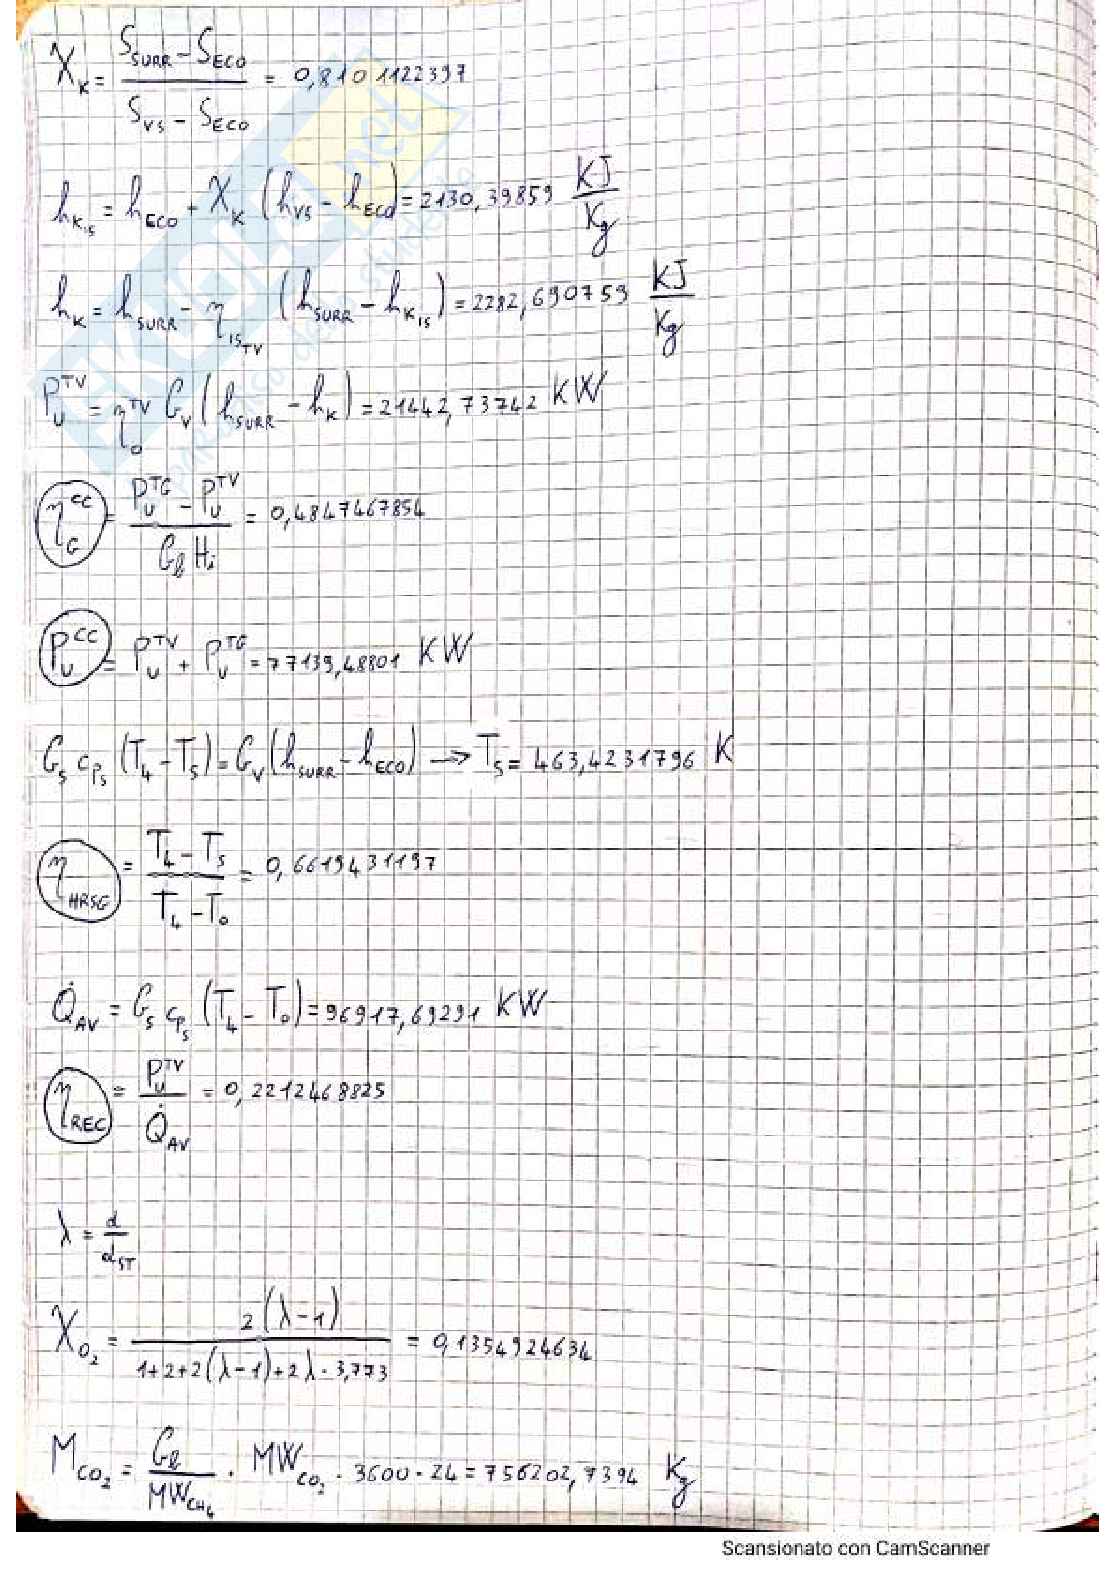 X_K = (S_SURR - S_ECO) / (S_VS - S_ECO) = 0,8101122397
h_K_IS = h_ECO + X_K (h_VS - h_ECO) = 2130,39859 KJ/Kg
h_K = h_SURR - η_IS_TV (h_SURR - h_K_IS) = 2282,690759 KJ/Kg
P_U^TV = η_O^TV G_V (h_SURR - h_K) = 21442,73742 KW
η_G^CC = (P_U^TG - P_U^TV) / (G_b H_i) = 0,4847467854
P_U^CC = P_U^TV + P_U^TG = 77139,48801 KW
G_S c_P_S (T_4 - T_5) = G_V (h_SURR - h_ECO) → T_5 = 463,4231796 K
η_HRSG = (T_4 - T_5) / (T_4 - T_0) = 0,6619431197
Q̇_AV = G_S c_P_S (T_4 - T_0) = 96917,69291 KW
η_REC = P_U^TV / Q̇_AV = 0,2212468825
λ = α / α_ST
X_O2 = 2(λ-1) / (1+2+2(λ-1)+2λ·3,773) = 0,1354924634
M_CO2 = G_b / MW_CH4 · MW_CO2 · 3600 · 24 = 756202,7394 Kg
Scansionato con CamScanner